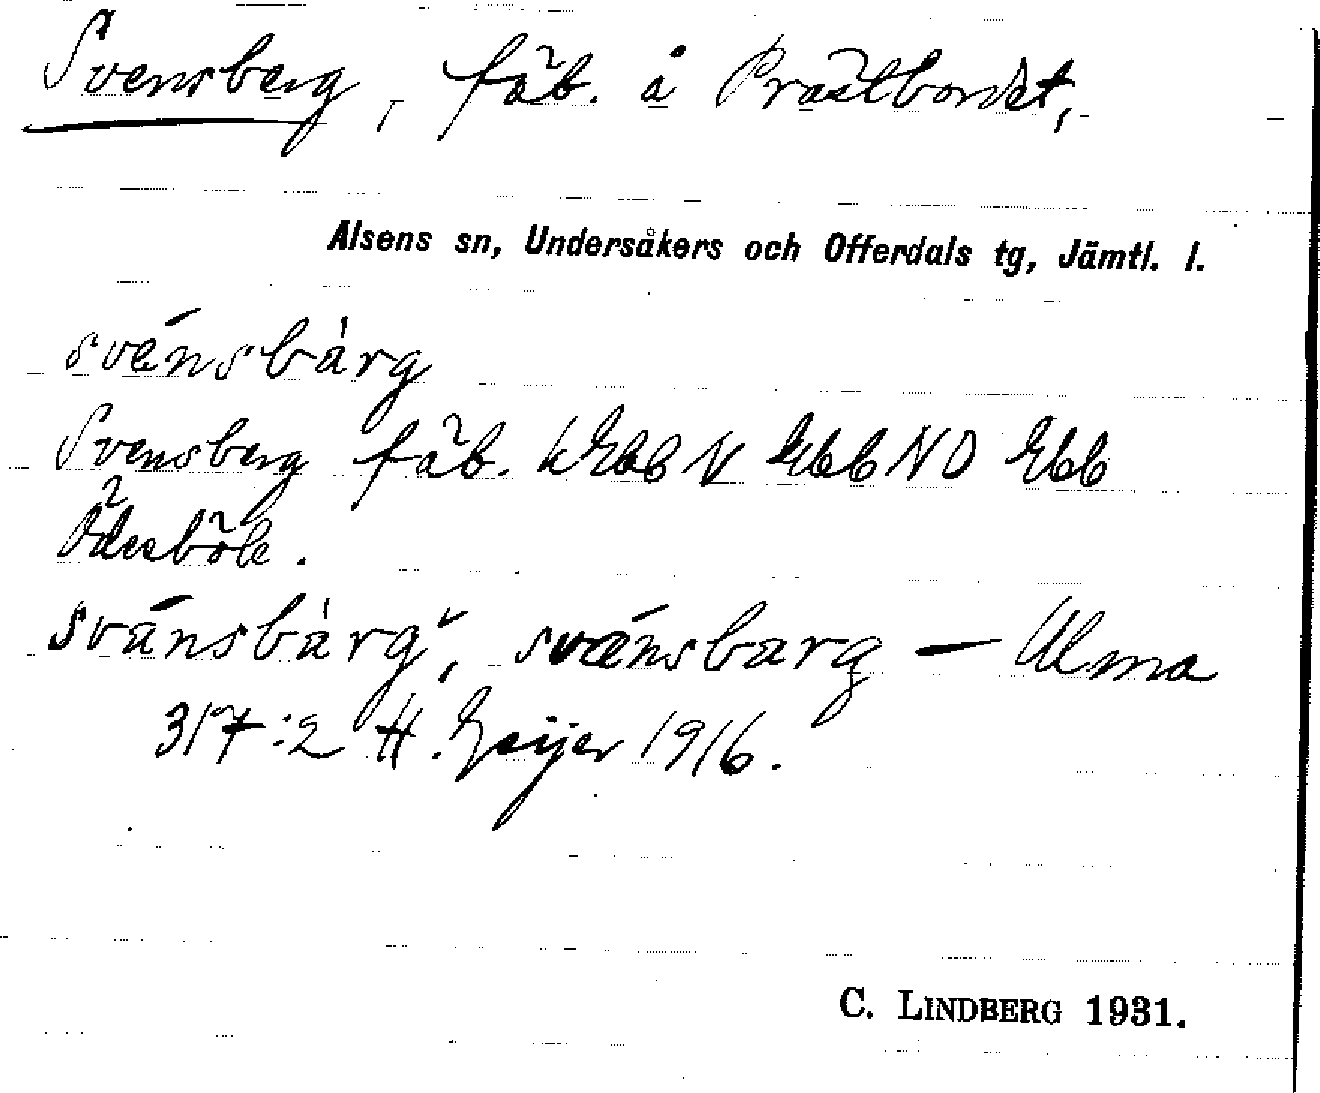 Svensberg, fäb. å Prästbordet,
Alsens sn, Undersåkers och Offerdals tg, Jämtl. l.
svénsbàrg
Svensberg fäb. N NO
Ödesböle.
svánsbàrg, svænsbarg — Ulma
317:2 H. Geijer 1916.
C. LINDBERG 1931.